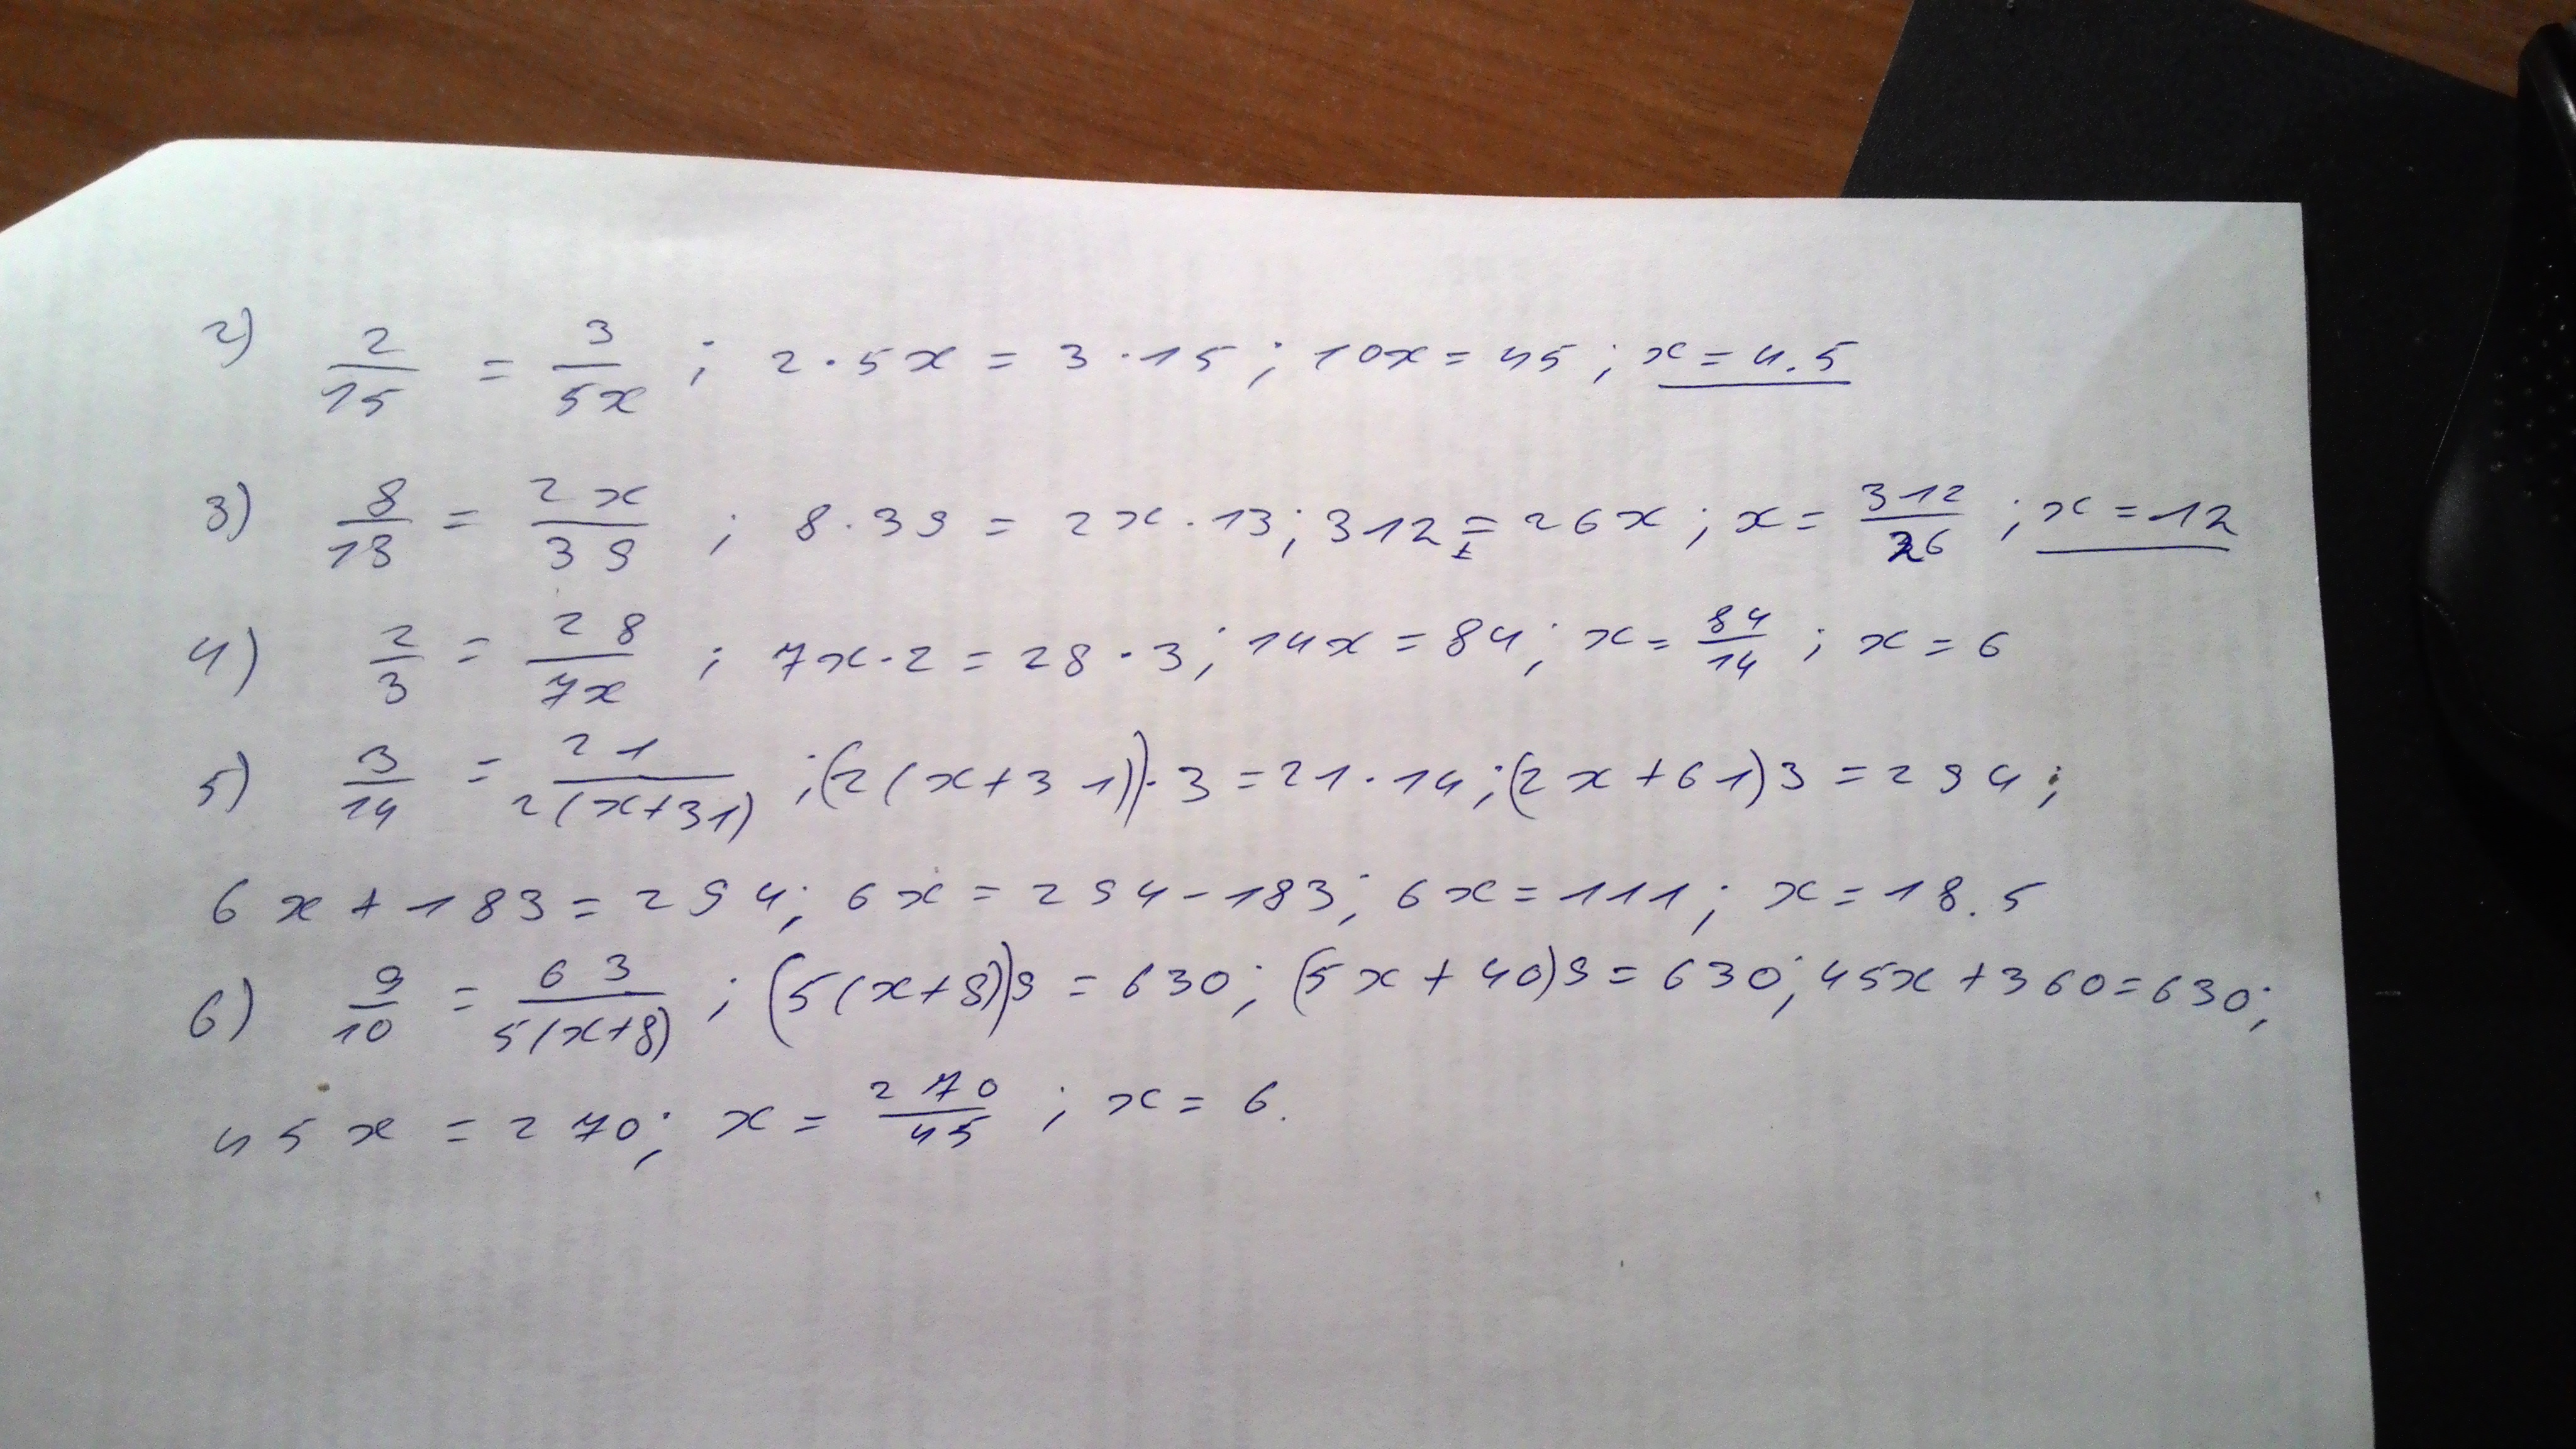 2) 2/15 = 3/5x ; 2·5x = 3·15; 10x = 45; x = 4.5
3) 8/13 = 2x/39 ; 8·39 = 2x·13; 312 = 26x; x = 312/26 ; x = 12
4) 2/3 = 28/7x ; 7x·2 = 28·3; 14x = 84; x = 84/14 ; x = 6
5) 3/14 = 21/2(x+31) ; (2(x+31))·3 = 21·14; (2x+61)3 = 294;
6x + 183 = 294; 6x = 294 - 183; 6x = 111; x = 18.5
6) 9/10 = 63/5(x+8) ; (5(x+8))9 = 630; (5x + 40)9 = 630; 45x + 360 = 630;
45x = 270; x = 270/45 ; x = 6.